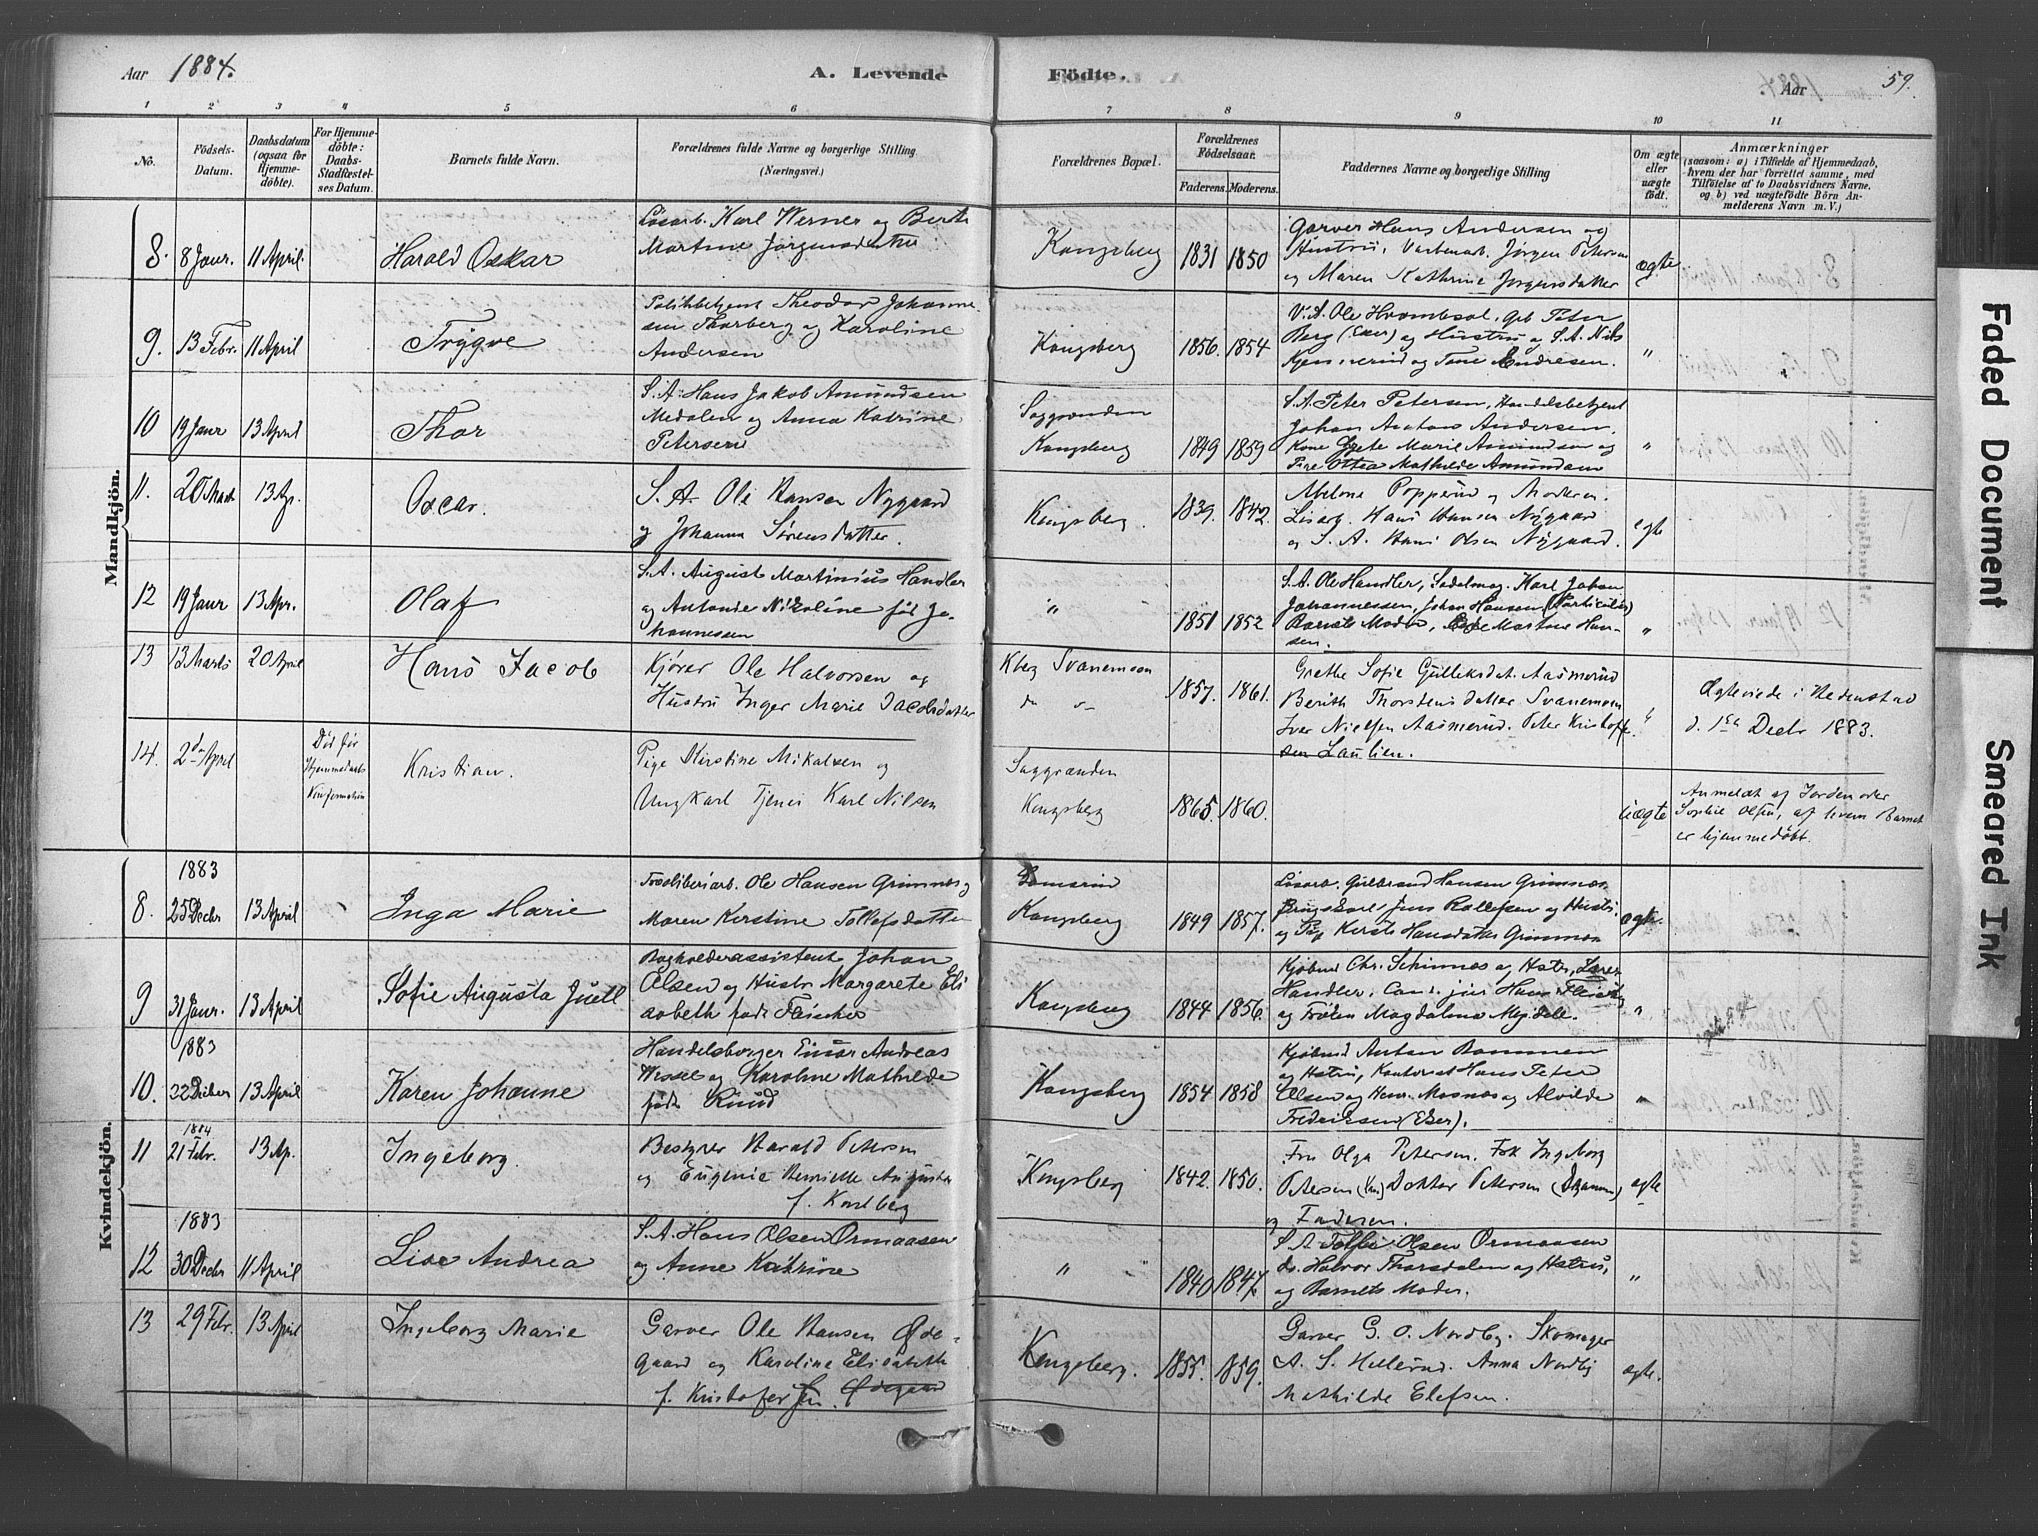 Aar 1884.
A. Levende Födte.
Aar
59.
1 2 3 4 5 6 7 8 9 10 11
No.
Födsels-
Datum.
Daabsdatum
(ogsaa for
Hjemme-
döbte).
For Hjemme-
döbte:
Daabs-
Stadfæstel-
ses Datum.
Barnets fulde Navn.
Forældrenes fulde Navne og borgerlige Stilling
(Næringsvei.)
Forældrenes Bopæl.
Forældrenes
Födselsaar.
Faderens. Moderens.
Faddernes Navne og borgerlige Stilling
Om ægte
eller
uægte
födt.
Anmærkninger
(saasom: a) i Tilfælde af Hjemmedaab,
hvem der har forrettet samme, med
Tilföielse af to Daabsvidners Navne.
og b) ved uægtefödte Börn An-
melderens Navn m. V.)
Mandkjön.
8. 8 Janr. 11 April Harald Oskar
Lösarb. Karl Werner og Berte
Martine Jörgensdatter
Kongsberg 1831 1850
Garver Hans Andersen og
Hustru, Jörgen Petersen
og Maren Kathrine Jörgensdatter
ægte
9. 13 Febr. 11 April Trygve
Politibetjent Theodor Johanne
sen Thorberg og Karoline
Andersen
Kongsberg 1856. 1854
Berg (Eker) og Hustru og S.A. Nils
og Tone Endresen.
"
10 19 Janr 13 April Thor
S.A. Hans Jakob Amundsen
Medalen og Anna Katrine
Petersen
Saggrenden
Kongsberg 1849 1859
S.A. Peter Petersen, Handelsbetjent
Johan Andersen,
Kone Marie Amundsen og
Pige Ottea Mathilde Amundsen
"
11. 20 Marts 13 Ap. Oscar.
S. A. Ole Hansen Nygaard
og Johanna Sörensdatter.
Kongsberg. 1839. 1842.
Abelone Popperud og Moderen.
Lösarb. Hans Hansen Nygaard
og S. A. Hans Olsen Nygaard.
egte
12 19 Janr 13 Apr. Olaf
S.A. August Martinius Handler
og Antonie Nikoline föd Jo-
hannessen
" 1851 1852
S.A. Ole Handler, Sadelmag. Karl Johan
Johannessen, Johan Hansen
Barnets Moder, Martine Han-
sen.
"
13 13 Marts 20 April Hans Jacob
Kjörer Ole Halvorsen og
Hustru Inger Marie Jacobsdatter
Kberg Svanemoen
1857. 1861.
Grethe Sofie Gulleksdat. Aasmerud
Berith Thorstensdatter Svanemoen
Iver Nielsen Aasmerud. Peter Kristoffe
sen Laulien.
Ægteviede i Hedenstad
d. 1ste Decbr 1883.
14. 2den April
Död för
Hjemmedaabs
Konfirmation
Kristian.
Pige Kirstine Mikalsen og
Ungkarl Tjener Karl Nilsen
Saggrenden
Kongsberg 1865. 1860.
uægte
Anmeldt af Jordemoder
Sophie Olsen, af hvem Barnet
er hjemmedöbt.
Kvindekjön.
1883
8. 25 Decbr 13 April Inga Marie
Ole Hansen Grimnes og
Maren Kerstine Tollefsdatter
Kongsberg 1849 1857.
Lösarb. Gulbrand Hansen Grimnes
Jens Rollefsen og Hustr.
og Pige Kersti Hansdatter Grimnes
ægte
9 31 Janr. 13 April Sofie Augusta Juell
Bogholderassistent Johan
Olsen og Hustr. Margarete Eli
sabeth födt Fleischer
Kongsberg 1844 1856.
Kjöbmd Chr. Schinnes og Hstr, Lærer
Handler, Cand. jur Hans Fleischer
og Fröken Magdalena Mejdell.
"
1883
10. 22 Decbr 13 April Karen Johanne
Handelsborger Einar Andreas
Wessel og Karoline Mathilde
födt Ruud
Kongsberg 1854 1858
Kjöbmd Anton Bommen
og Hstru, Kontorist Hans Peter
Olsen og Henr. Mosnes og Alvilde
Fredriksen (Eker).
"
1884
11 21 Febr. 13 Ap. Ingeborg.
Bestyrer Harald Petersen
og Eugenie Henriette Augusta
f. Karlberg
Kongsberg 1842. 1850.
Fru Olga Petersen. Frk Ingeborg
Petersen Doktor Petersen (Drammen)
og Faderen.
ægte
1883
12 30 Decbr 11 April Lise Andrea
S.A. Hans Olsen Ormaasen
og Anne Katrine
" " 1840 1847.
S.A. Olsen Ormaasen
do. Halvor Thorsdalen og Hstru,
og Barnets Moder.
"
13 29 Febr. 13 April Ingeborg Marie
Garver Ole Hansen Öde-
gaard og Karoline Elisabeth
f. Kristofersen. Ödegaard
Kongsberg. 1855. 1859.
Garver G. O. Nordby. Skomager
A. S. Hellerud. Anna Nordby
Mathilde Elefsen.
ægte.
Faded Document
Smeared Ink